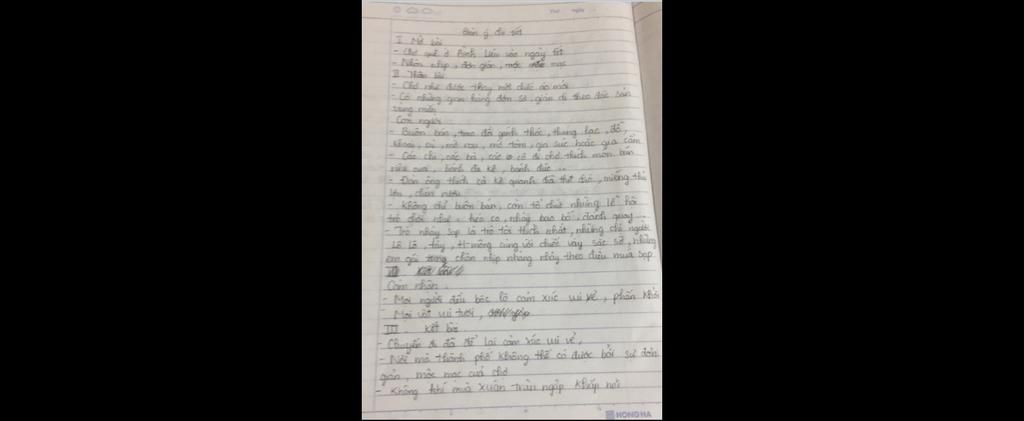 Dàn ý chi tiết
I Mở bài
- Chợ quê ở Bình Liêu vào ngày tết
- Nhộn nhịp, đơn giản, mộc mạc
II Thân bài
- Chợ như được thay một chiếc áo mới
- Có những gian hàng đơn sơ, giản dị theo đặc sản
vùng miền
Con người
- Buôn bán, trao đổi gánh thóc, thúng lạc, đỗ,
khoai, củ, mớ rau, mớ tôm, gia súc hoặc gia cầm
- Các chị, các bà, các cô đi chợ thích món bún
riêu cua, bánh đa kê, bánh đúc ...
- Đàn ông thích cà kê quanh đĩa thịt chó, miếng thủ
lợn, chén rượu
- Không chỉ buôn bán, còn tổ chức những lễ hội
trò chơi như: kéo co, nhảy bao bố, đánh quay ...
- Trò nhảy sạp là trò tôi thích nhất, những chị người
Lô Lô, tày, H-mông cùng với chiếc váy sặc sỡ, những
em gái trong chân nhịp nhàng nhảy theo điệu múa sạp
III
Cảm nhận
- Mọi người đều bộc lộ cảm xúc vui vẻ, phấn khởi
Mọi vật vui tươi,
III. Kết bài
- Chuyến đi đã để lại cảm xúc vui vẻ,
- Nơi mà thành phố không thể có được bởi sự đơn
giản, mộc mạc của chợ
- Không khí mùa xuân tràn ngập khắp nơi
HONG HA